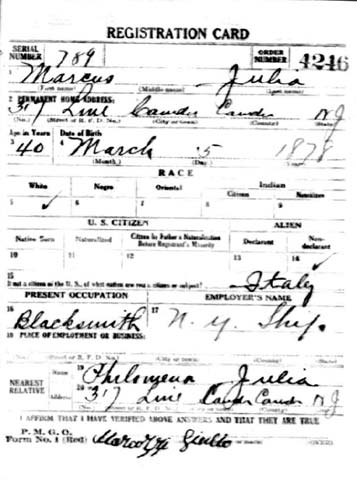 REGISTRATION CARD
SERIAL NUMBER 789 ORDER NUMBER 4246
1 Marcus Julia
(First name) (Middle name) (Last name)
2 PERMANENT HOME ADDRESS:
317 Line Camden Camden NJ
(No.) (Street or R. F. D. No.) (City or town) (County) (State)
Age in Years Date of Birth
3 40 4 March 5 1878
(Month) (Day)
RACE
White Negro Oriental Indian
Citizen Noncitizen
5 ✓ 6 7 8 9
U. S. CITIZEN ALIEN
Native Born Naturalized Citizen by Father's Naturalization Before Registrant's Majority Declarant Non-declarant
10 11 12 13 14 ✓
15 If not a citizen of the U. S., of what nation are you a citizen or subject? Italy
PRESENT OCCUPATION EMPLOYER'S NAME
16 Blacksmith 17 N. Y. Ship
18 PLACE OF EMPLOYMENT OR BUSINESS:
(No.) (Street or R. F. D. No.) (City or town) (County) (State)
NEAREST RELATIVE 19 Philomena Julia
20 317 Line Camden Camden NJ
I AFFIRM THAT I HAVE VERIFIED ABOVE ANSWERS AND THAT THEY ARE TRUE
P. M. G. O.
Form No. 1 (Red)